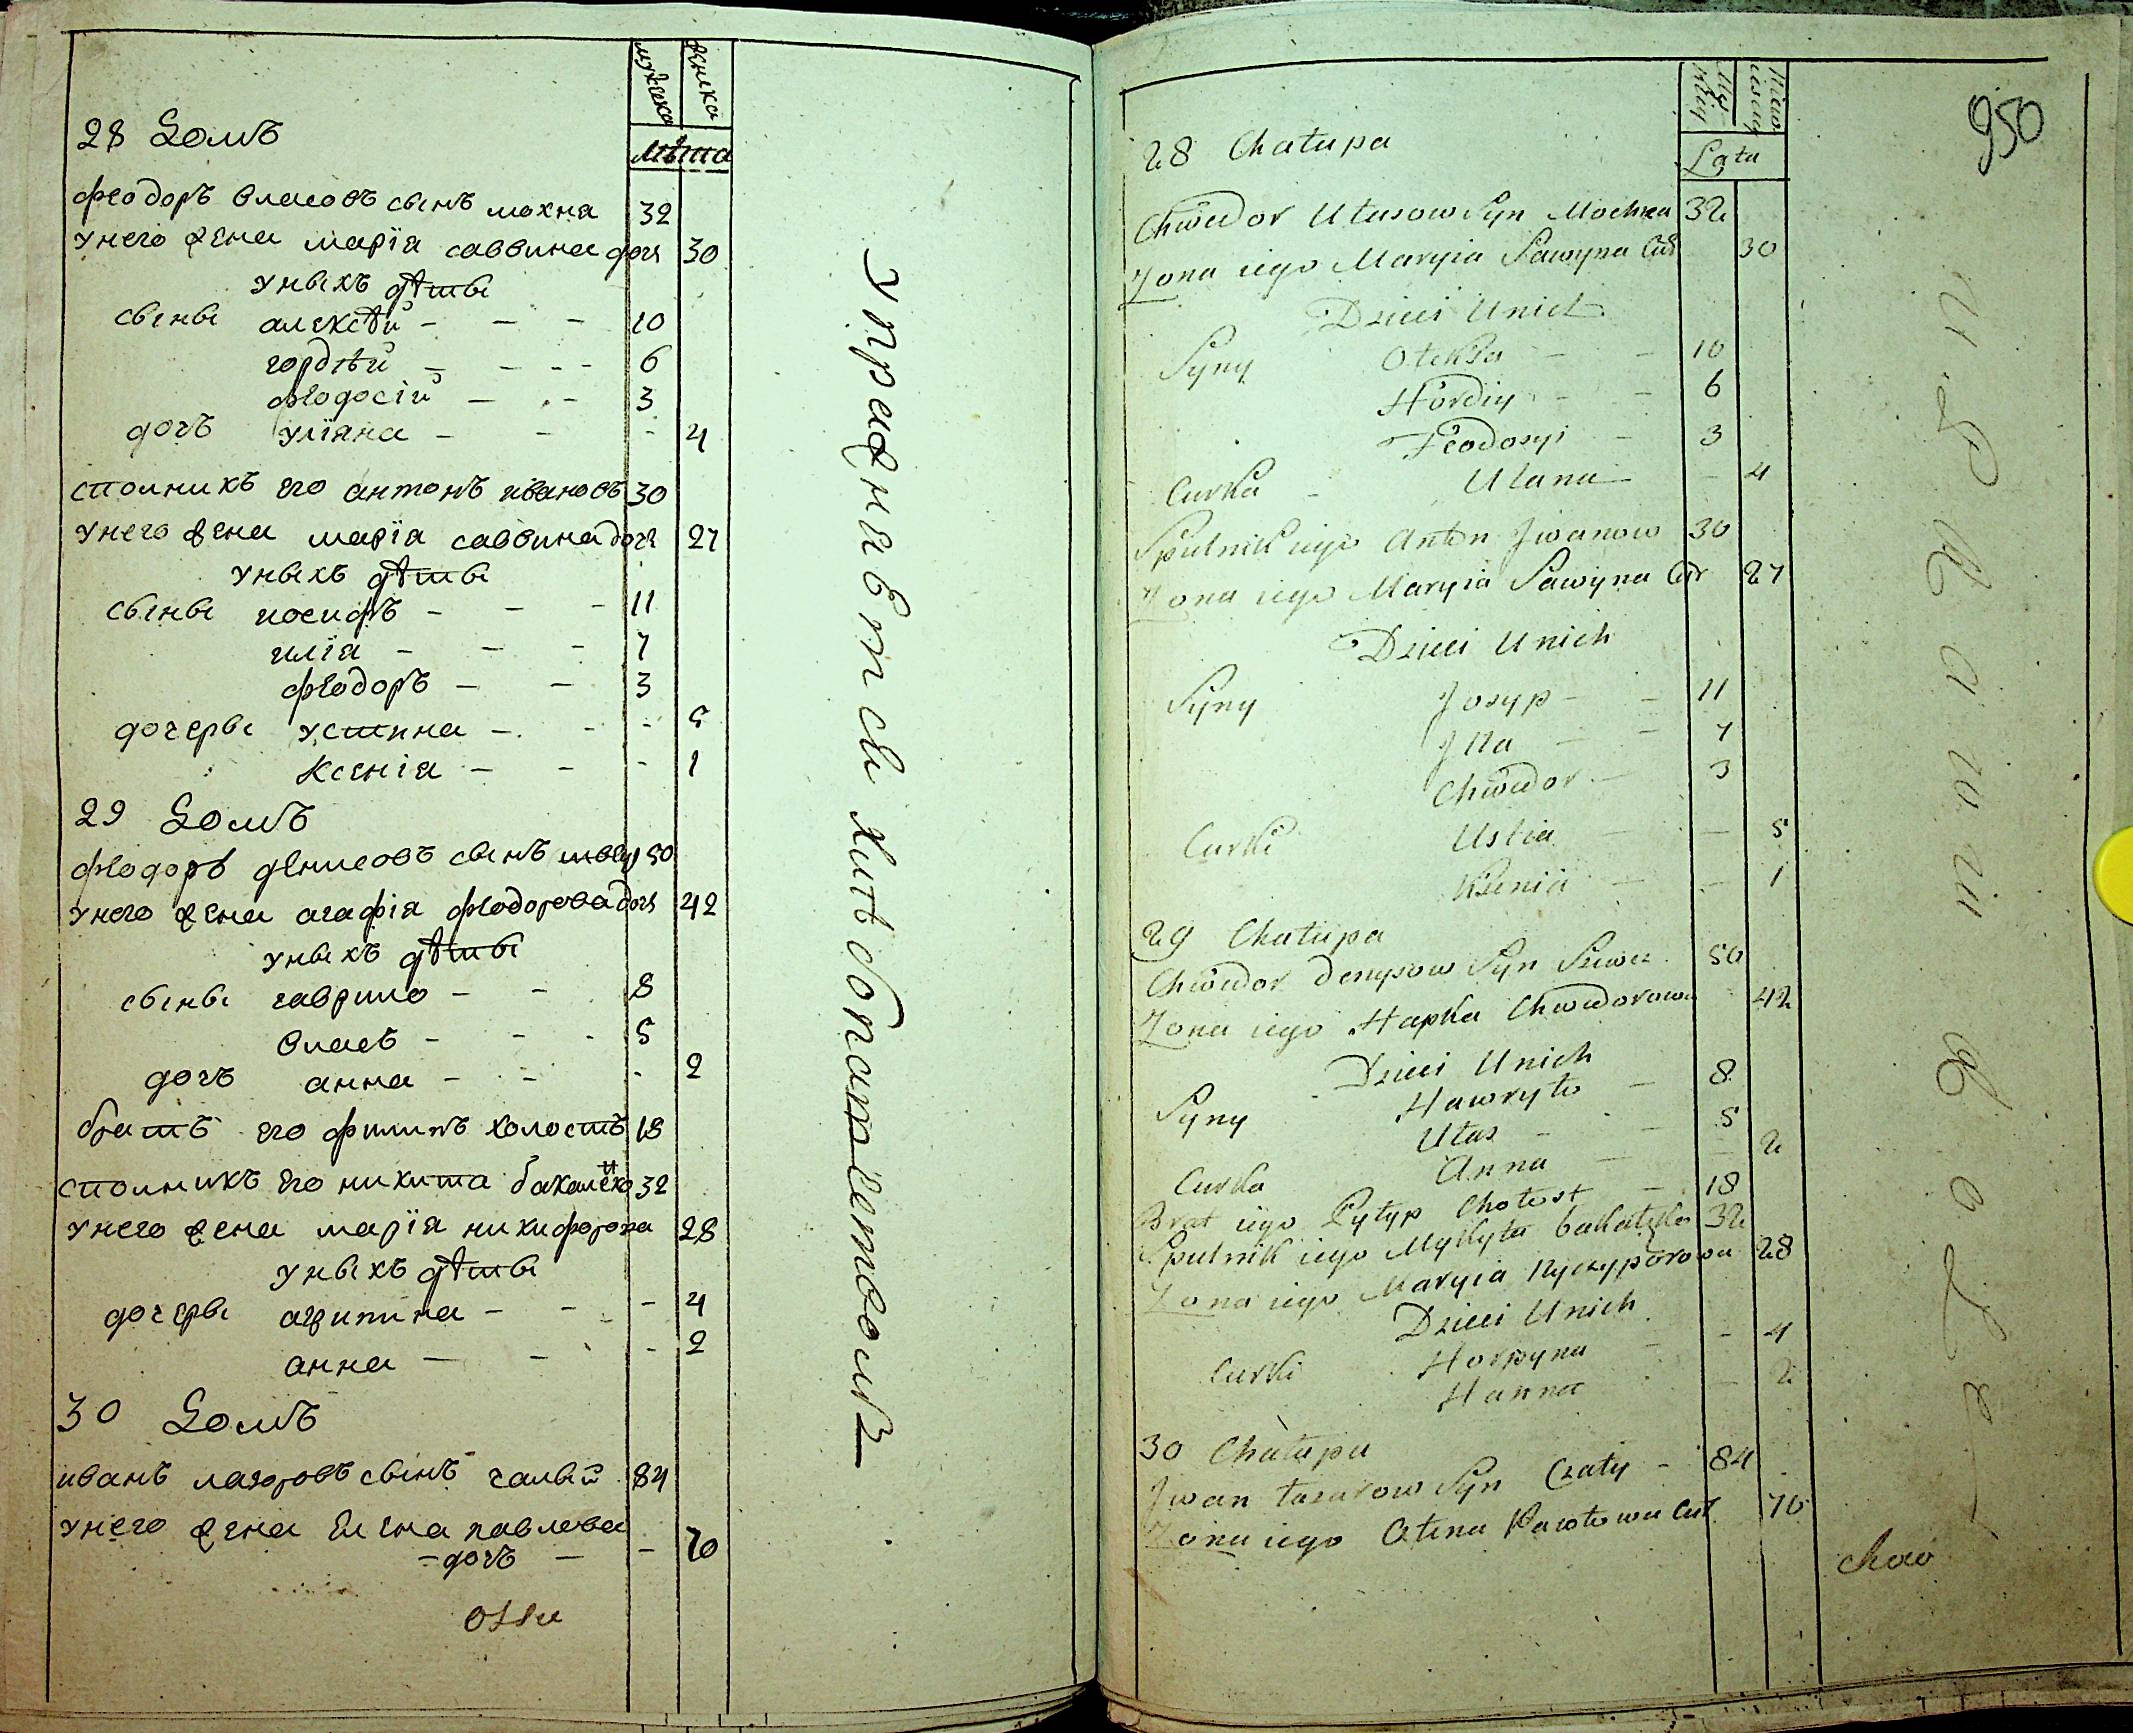 мужеска женска
лѣта
28 Домъ
феодоръ власовъ сынъ махна 32
унего жена марїа саввина дочь 30
уныхъ дѣты
сыны алексѣй - - - 10
гордѣй - - - - 6
феодосій - - - 3
дочъ улїяна - - - 4
сполникъ его антонъ ивановъ 30
унего жена марїа саввина дочь 27
уныхъ дѣты
сыны иосифъ - - - 11
илїа - - - 7
феодоръ - - 3
дочеры устина - - - 5
ксеніа - - - 1
29 Домъ
феодоръ денисовъ сынъ швец 50
унего жена агафіа феодорова дочь 42
уныхъ дѣты
сыны гаврило - - 8
власъ - - - 5
дочъ анна - - - 2
братъ его филипъ холостъ 18
сполникъ его никита бакалейко 32
унего жена марїа никифорова 28
уныхъ дѣты
дочеры агрипина - - - 4
анна - - - 2
30 Домъ
иванъ лазоровъ сынъ чалый 84
унего жена Елена павлова
- дочъ - - 70
упражняѣтсы хлѣбопашествомъ
950
Lata
28 Chałupa
Chwedor Ułasow Syn Mochna 32
Zona iego Maryia Sawyna Cur 30
Dzieci Unich
Syny Ołexa - - 10
Hordiy - - 6
Feodosyi - 3
Curka - Ulana - 4
Spulnik iego Anton Jwanow 30
Zona iego Maryia Sawyna Cur 27
Dzieci Unich
Syny Josyp - - 11
Jlia - - 7
Chwedor - 3
Curki Ustia - - 5
Ksenia - - 1
29 Chałupa
Chwedor Denysow Syn Szwec 50
Zona iego Hapka Chwedorowa 42
Dzieci Unich
Syny Hawryło - 8
Ułas - - 5
Curka Anna - 2
Brat iego Pyłyp Chołost - 18
Spulnik iego Mykyta bakałeyko 32
Zona iego Maryia Nyczyporowa 28
Dzieci Unich
Curki Horpyna - - 4
Hanna - 2
30 Chałupa
Jwan Łazarow Syn Czały - 84
Zona iego Ołena Pawłowa Cur 70